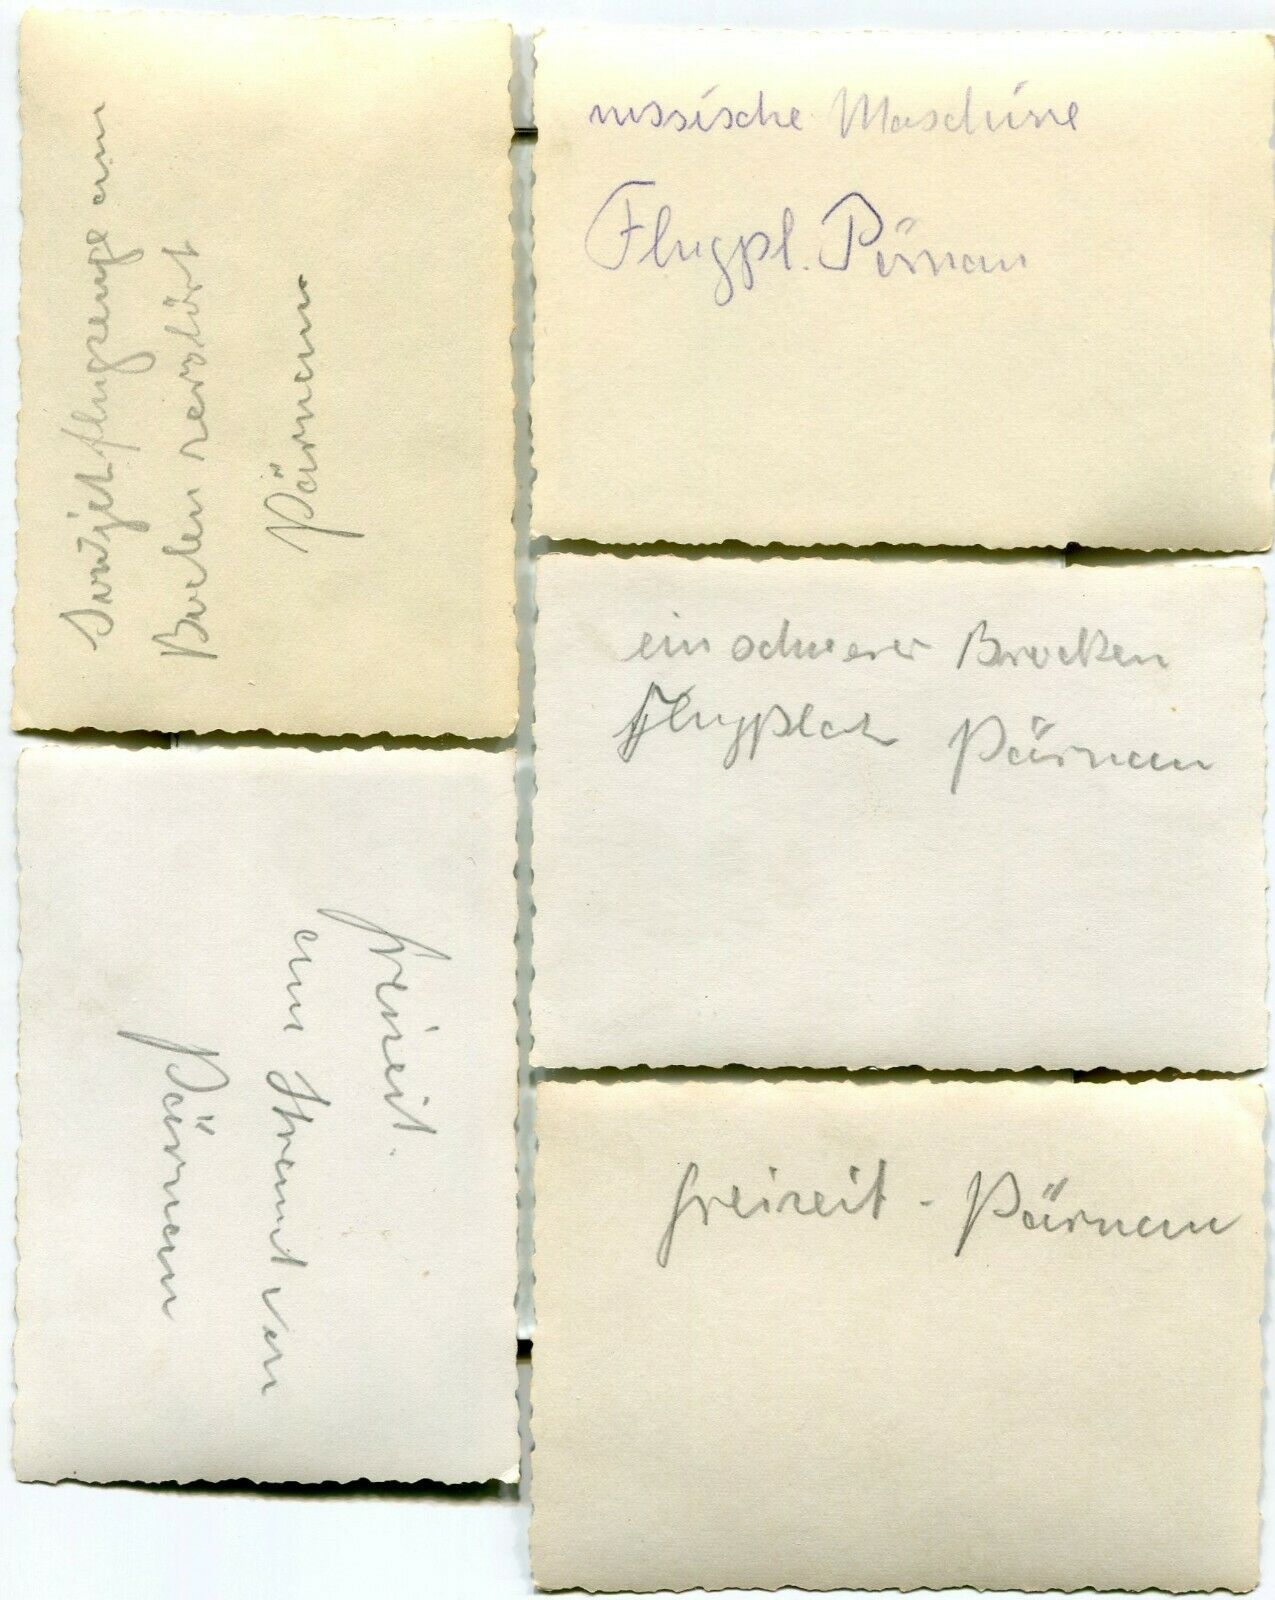 Sowjetflugzeuge am
Boden zerstört
Pärnau
russische Maschine
Flugpl. Pärnau
ein schwerer Brocken
Flugplatz Pärnau
freizeit.
am Strand von
Pärnau
freizeit - Pärnau